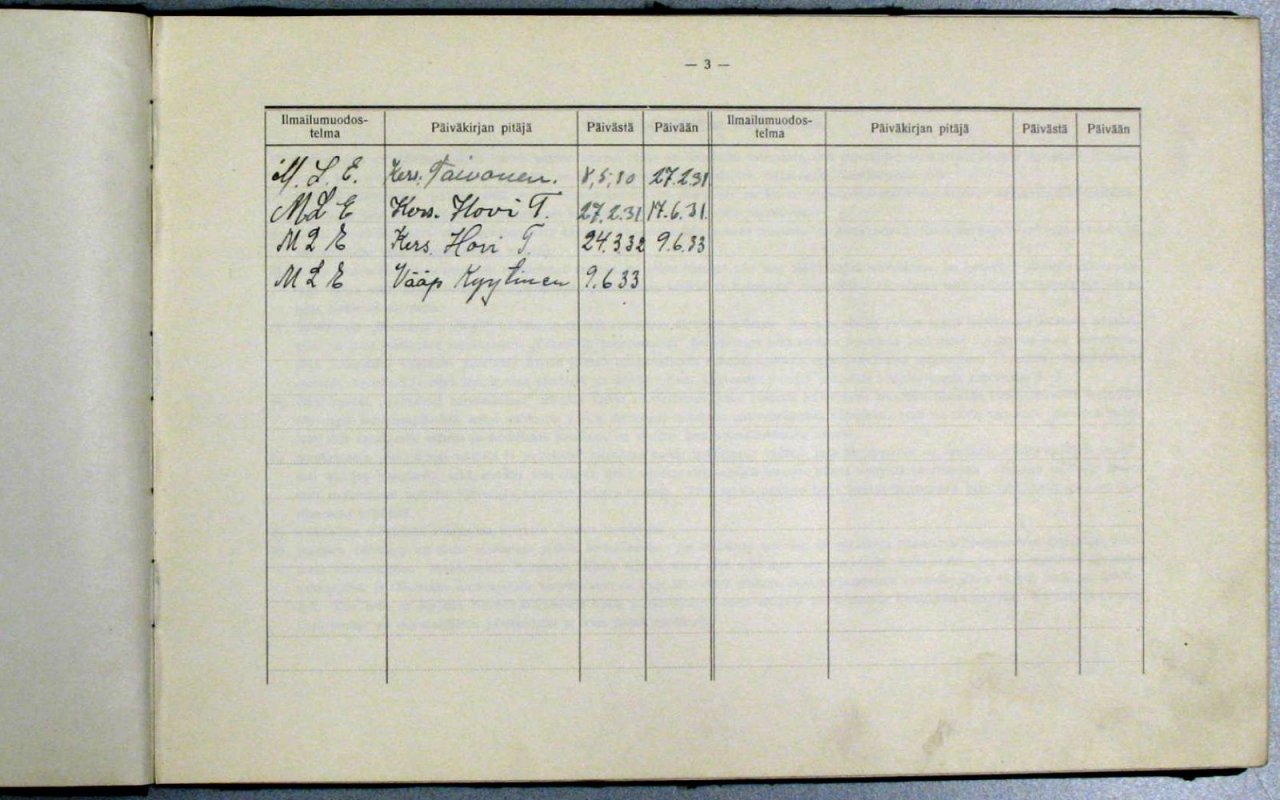 — 3 —
Ilmailumuodos-
telma
Päiväkirjan pitäjä
Päivästä
Päivään
Ilmailumuodos-
telma
Päiväkirjan pitäjä
Päivästä
Päivään
M. L. E. Kers. Taivonen. 8,5,30 27.2.31
M L E Kers. Hovi T. 27.2.31 17.6.31.
M L E Kers. Hovi T. 24.3.32 9.6.33
M L E Vääp Kyytinen 9.6 33